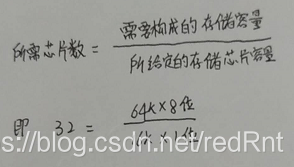 所需芯片数 = 需要构成的存储容量 / 所给定的存储芯片容量
即 32 = 64K×8位 / K×1位
s://blog.csdn.net/redRnt